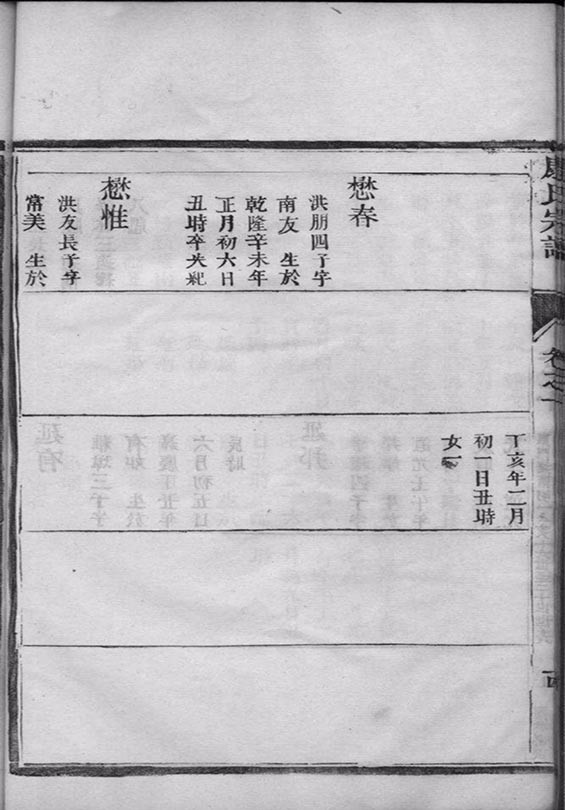 氏宗譜
卷之一
丁亥年二月
初一日丑時
女一
懋春
洪朋四子字
南友 生於
乾隆辛未年
正月初六日
丑時卒失紀
懋惟
洪友長子字
常美 生於